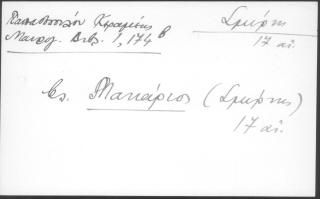 Παπαδοπούλου Κεραμέως
Μαυρογ. Βιβλ. 1, 174β
Σμύρνης
17 αἰ.
Μακάριος (Σμύρνης)
17 αἰ.